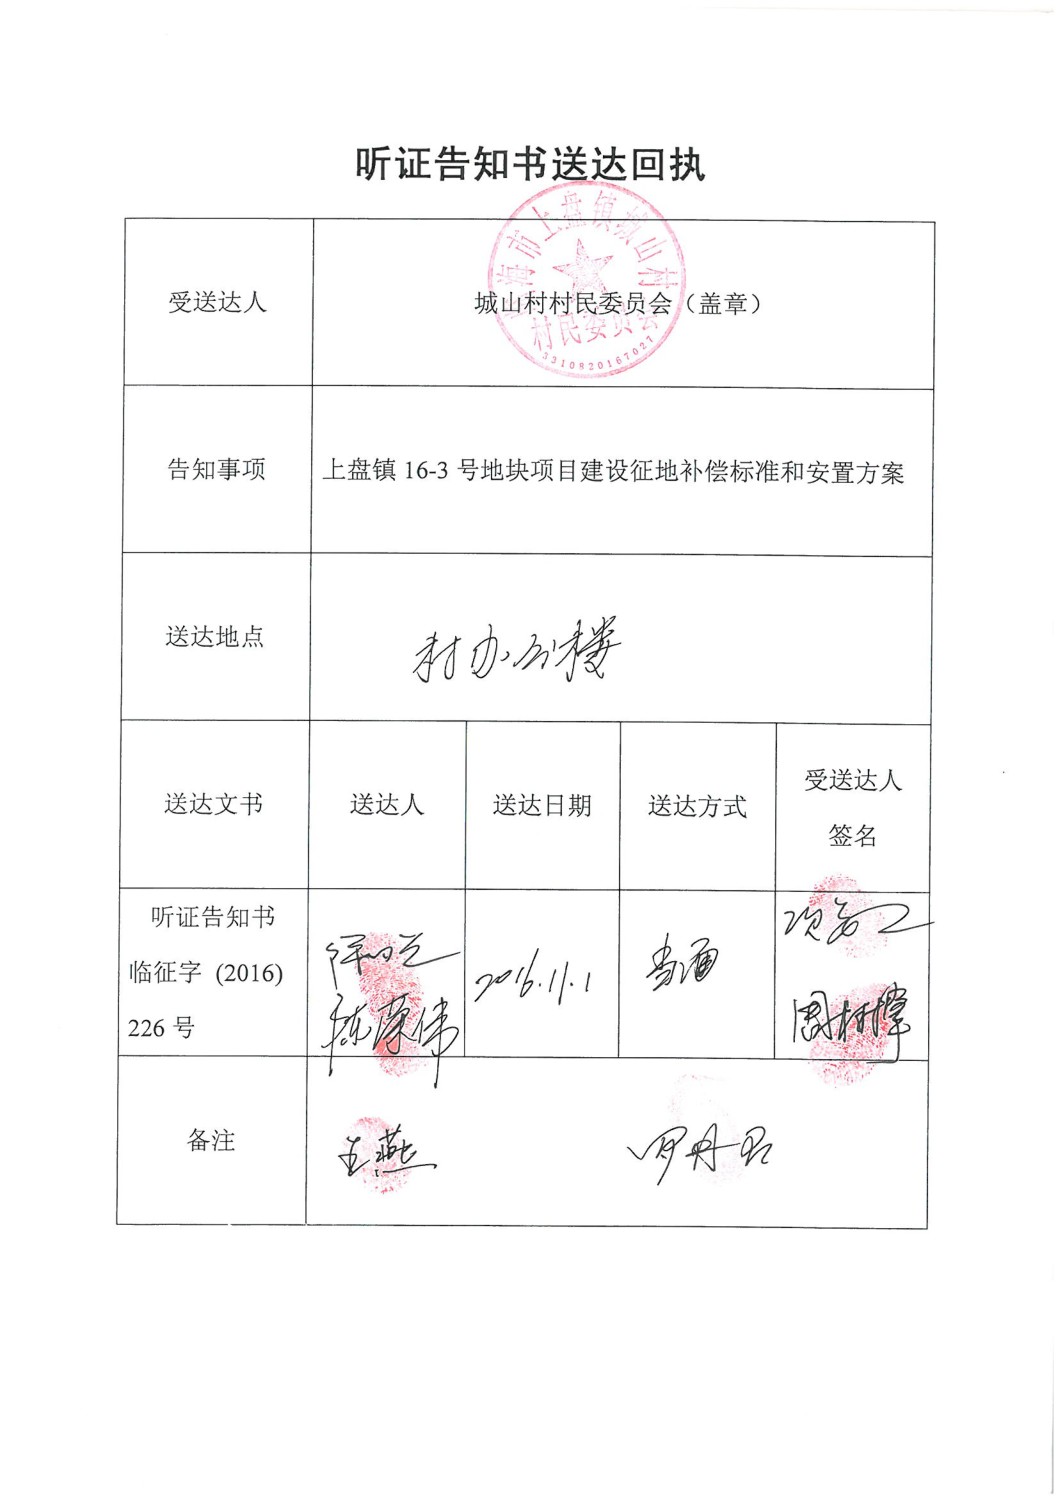 听证告知书送达回执
临海市上盘镇城山村
村民委员会
3310820167027
受送达人
城山村村民委员会（盖章）
告知事项
上盘镇 16-3 号地块项目建设征地补偿标准和安置方案
送达地点
村办公楼
送达文书
送达人
送达日期
送达方式
受送达人
签名
听证告知书
临征字 (2016)
226 号
陈荣伟
2016.11.1
当面
备注
王燕